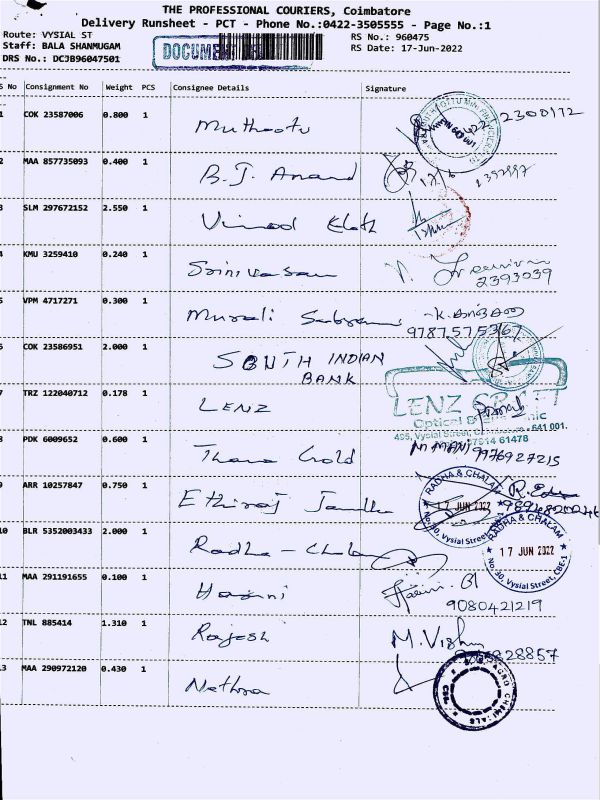 THE PROFESSIONAL COURIERS, Coimbatore
Delivery Runsheet - PCT - Phone No.:0422-3505555 - Page No.:1
Route: VYSIAL ST RS No.: 960475
Staff: BALA SHANMUGAM RS Date: 17-Jun-2022
DRS No.: DCJB96047501
S No Consignment No Weight PCS Consignee Details Signature
1 COK 23587006 0.800 1 Muthootu 2300172
2 MAA 857735093 0.400 1 B.J. Anand 17/6
3 SLM 297672152 2.550 1 Vinod
4 KMU 3259410 0.240 1 Srinivasan 2393039
5 VPM 4717271 0.300 1 Murali 9787575367
6 COK 23586951 2.000 1 SOUTH INDIAN
BANK
7 TRZ 122040712 0.178 1 LENZ LENZ
Optical
495, Vysial Street, 641 001.
97914 61478
8 PDK 6009652 0.600 1 Thana Gold M MANI 9976927215
9 ARR 10257847 0.750 1 Ethiraj RADHA & CHALAM
17 JUN 2022
No:30, Vysial Street
10 BLR 5352003433 2.000 1 Radha - Chalam RADHA & CHALAM
17 JUN 2022
No:30, Vysial Street, CBE-1
11 MAA 291191655 0.100 1 Harini 9080421219
12 TNL 885414 1.310 1 Rajesh M. Vishnu
28857
13 MAA 290972120 0.430 1 Nethra AGRO CHEMICALS